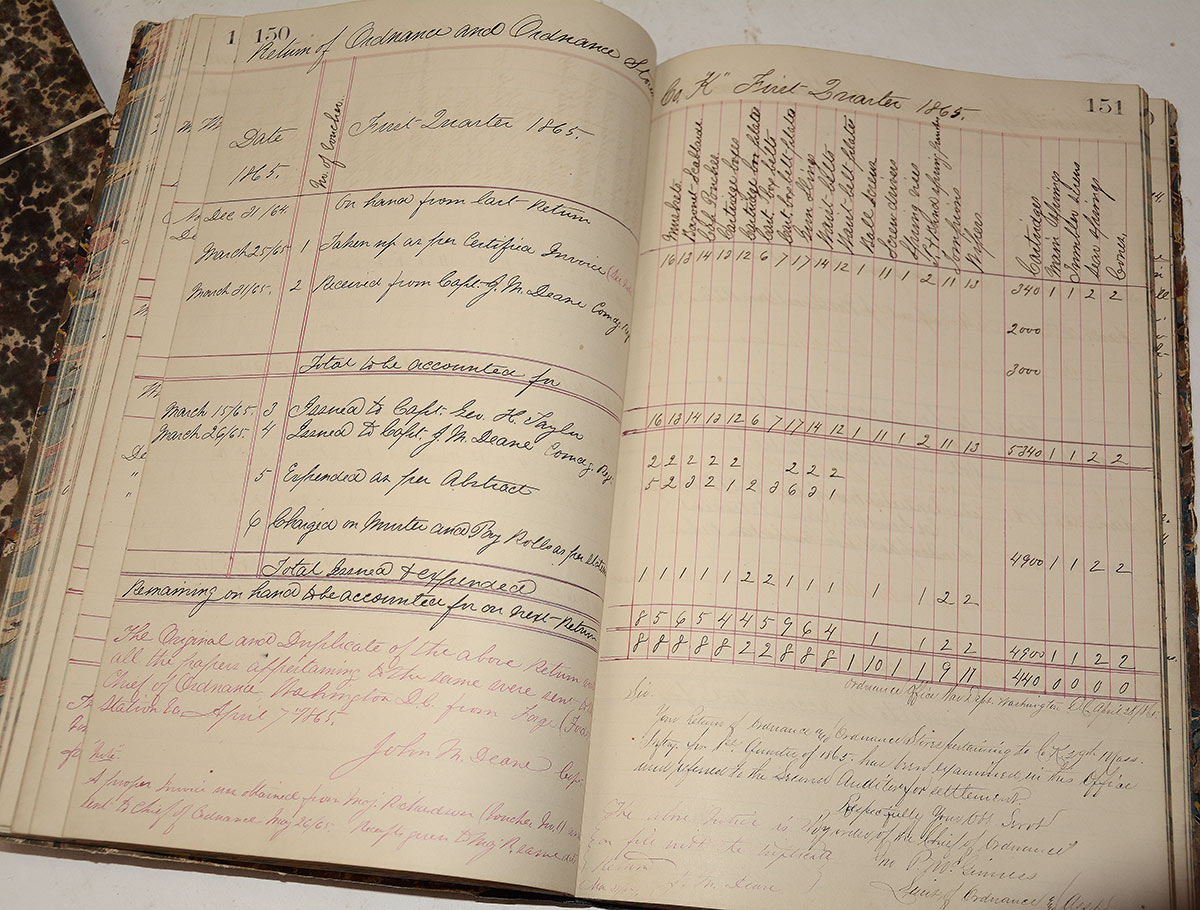 1 150
Return of Ordnance and Ordnance Stores
Date
1865.
No. of Voucher
First Quarter 1865.
Dec 31/64. On hand from last Return
March 25/65 1 Taken up as per Certified Invoice
March 31/65. 2 Received from Capt. J. M. Deane Comdg. Reg
Total to be accounted for
March 15/65. 3 Issued to Capt. Geo. H. Taylor
March 26/65. 4 Issued to Capt. J. M. Deane Comdg. Reg.
" 5 Expended as per Abstract
" 6 Charged on Muster and Pay Rolls as per
Total Issued & expended
Remaining on hand to be accounted for on next Return
The Original and Duplicate of the above Return
all the papers appertaining to the same were sent to
Chief of Ordnance Washington D.C. from
Station Va. April 7th 1865.
John M. Deane Capt
Note.
A proper Invoice was obtained from Maj. Richardson (Voucher No. 1)
sent to Chief of Ordnance May 26/65. Receipts given to Maj R same
Co. "K" First Quarter 1865.
151
Muskets
Bayonet Scabbards
Cartridge boxes
Cartridge box plates
Cart. box belts
Cart. box belt plates
Gun Slings
Waist belts
Waist belt plates
Ball Screws
Screw drivers
Spring vice
Tompions
Wipes
Cartridges
Main Springs
Tumbler Screws
Sear Springs
Cones
16 13 14 13 12 6 7 17 14 12 1 11 1 2 11 13 340 1 1 2 2
2000
3000
16 13 14 13 12 6 7 17 14 12 1 11 1 2 11 13 5340 1 1 2 2
2 2 2 2 2 2 2 2
5 2 3 2 1 2 3 6 3 1
4900 1 1 2 2
1 1 1 1 1 2 2 1 1 1 1 1 2 2
8 5 6 5 4 4 5 9 6 4 1 1 2 2 4900 1 1 2 2
8 8 8 8 8 2 2 8 8 8 1 10 1 1 9 11 440 0 0 0 0
Ordnance Office War Dept. Washington D.C. April 28/65
Sir.
Your Return of Ordnance and Ordnance Stores pertaining to Co. K Regt. 11 Mass.
Infty. for 1st Quarter of 1865. has been examined in this Office
and referred to the Second Auditor for settlement.
Respectfully Your Obt Servt
The above Notice is By order of the Chief of Ordnance
on file with the duplicate
Return
J. M. Deane
Lieut of Ordnance & Asst